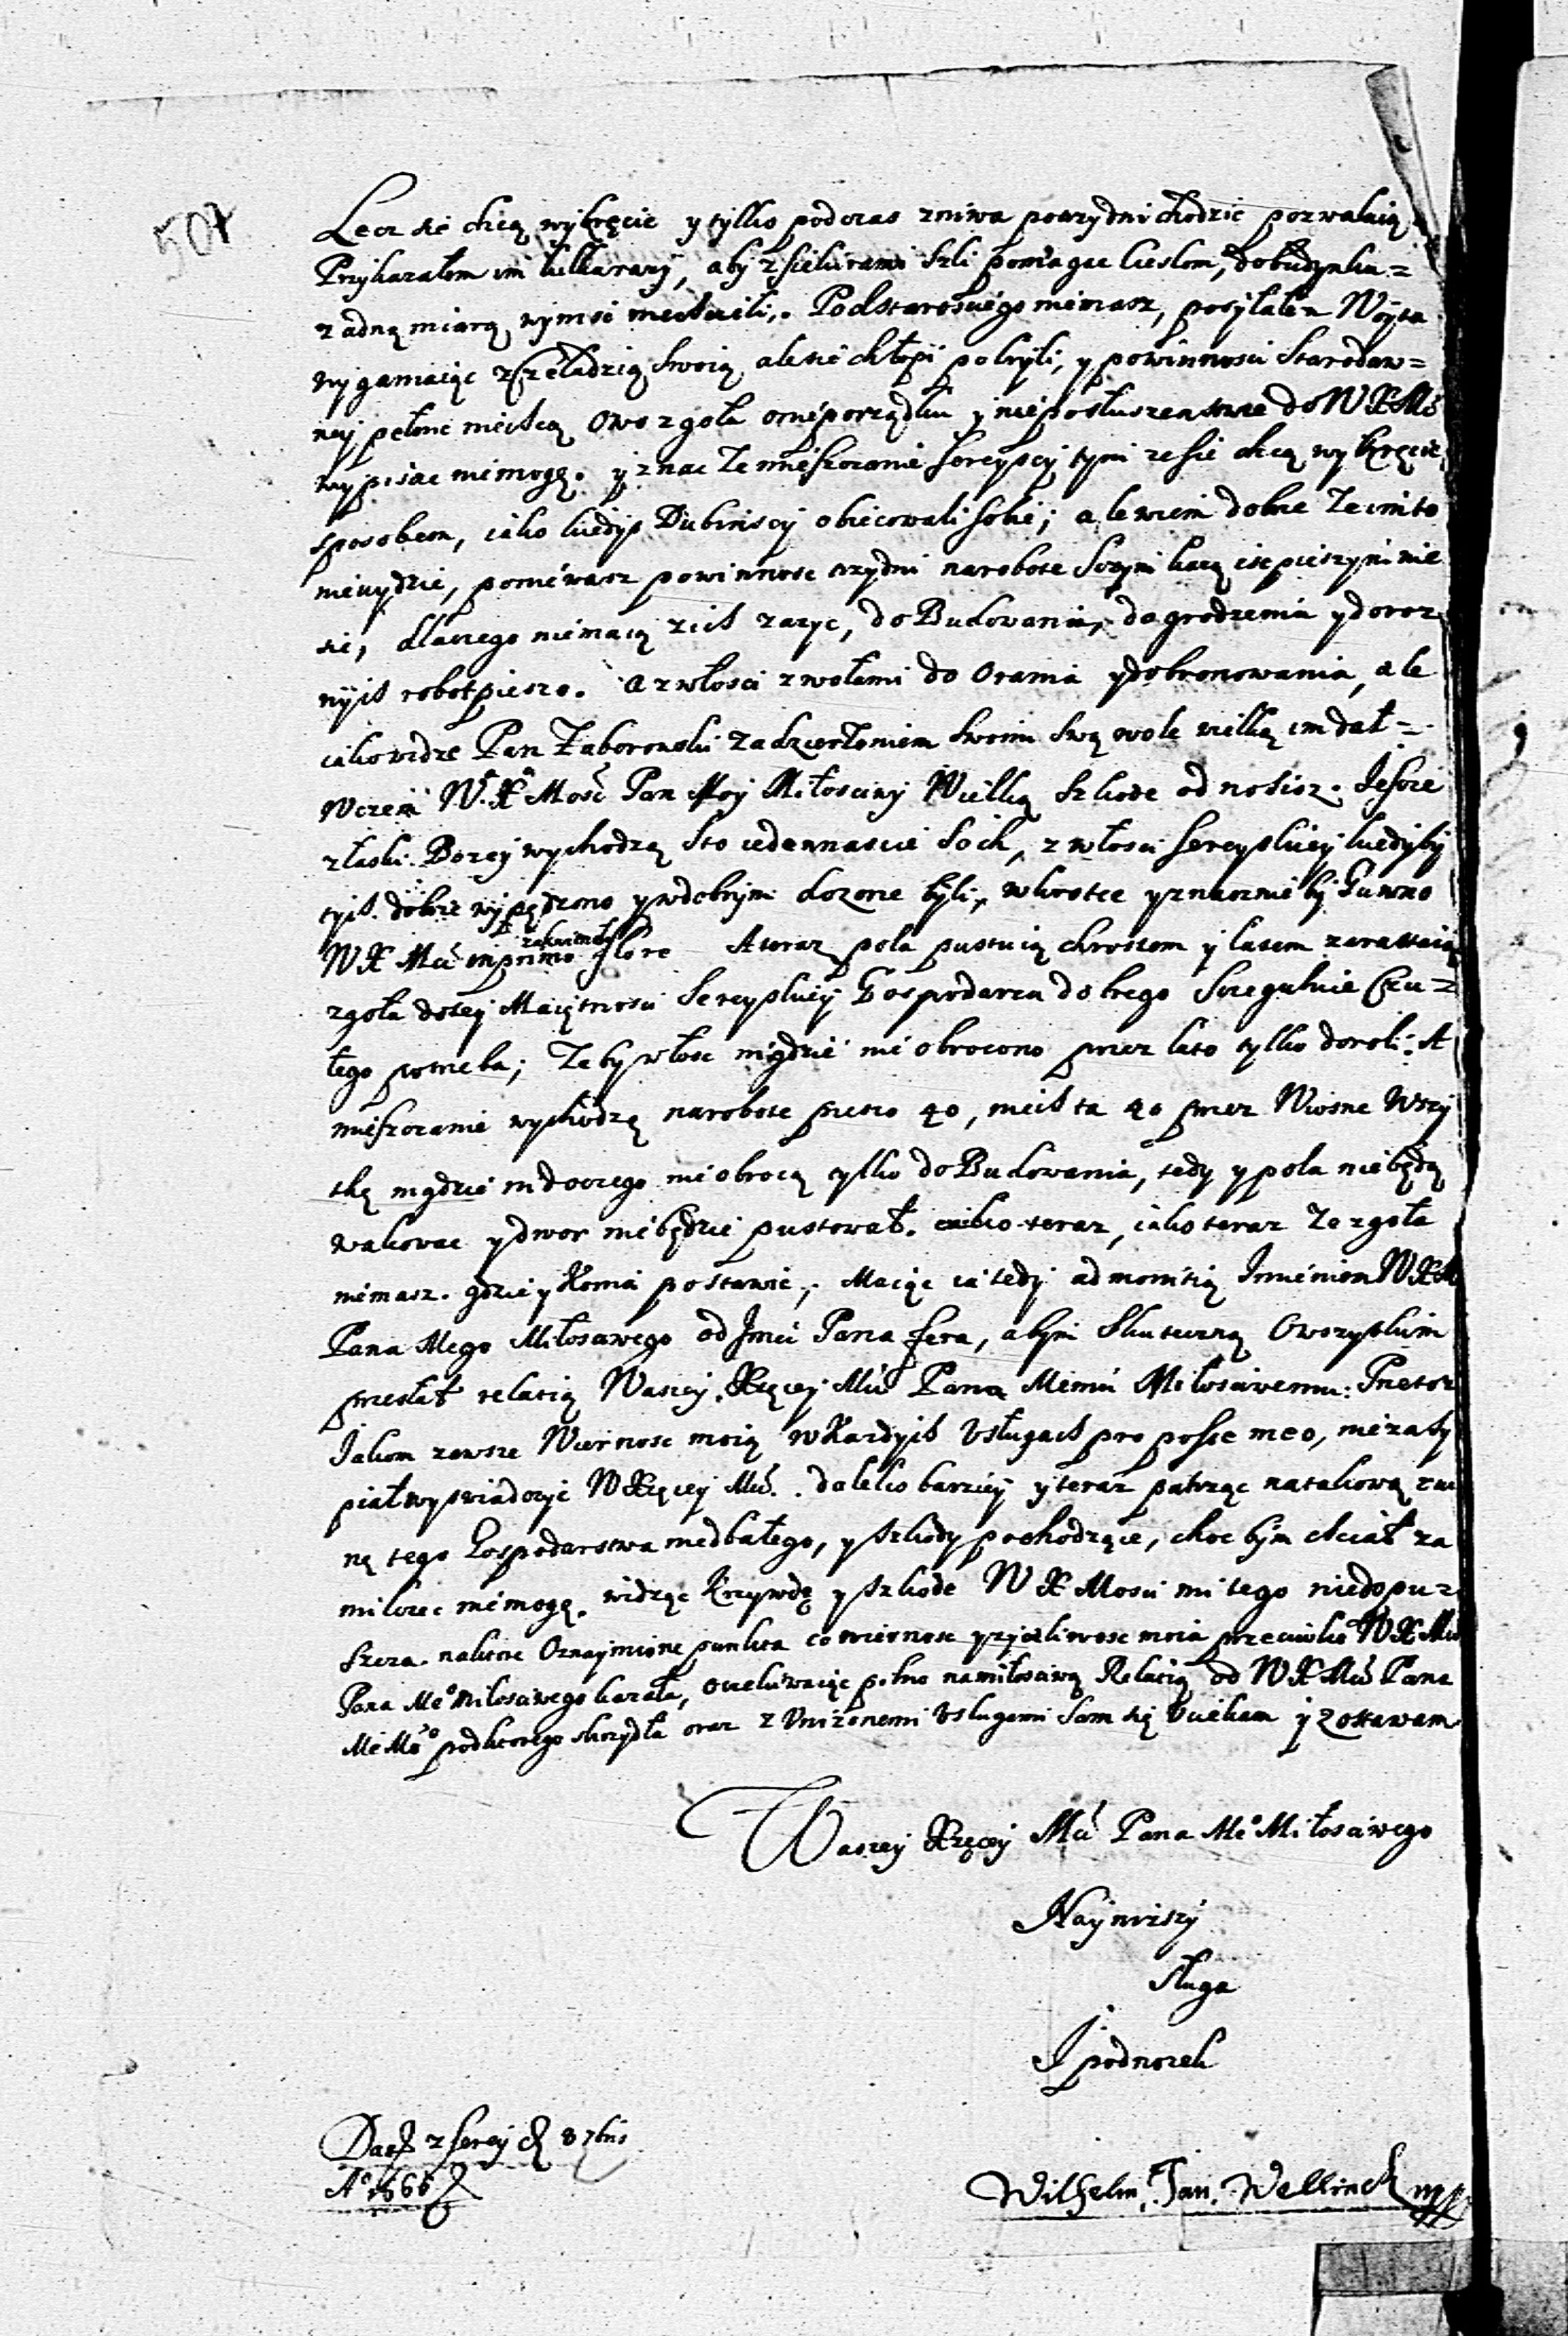 507
Lecz się chcą wykręcic y tylko podczas zniwa po trzy dni chodzic pozwalaią
Przykazałem im kilka razy, aby z siekierami szli pomagac Cieslom, do budynku =
zadną miarą wymsc nie chcieli. Podstarosciego niemasz, posyłałem Woyta
wyganiaiąc z Czeladzią swoią, ale sie chłopi pokryli, y powinnosci Starodaw=
ney pełnic niechcą Owo zgoła o nieporządku y nieposłuszenstwie do W X Mci
wypisac niemogę. y znac ze mieszczanie sereyscy tym ze sie chcą wykręcic
sposobem, iako kiedys Dubinscy obiecowali sobie; ale wiem dobrze ze im to
nieuydzie, poniewasz powinnosc trzy dni na robote
sie, dlaczego niemaią zich zazyc, do Budowania, do grodzenia y do roz
nych robot pieszo. A z włosci z wołami do Orania y do bronowania, ale
iako widze Pan Zaborowski za dzierżeniem swoim swą wole wielką im dał =
W czem W. X. Mosc Pan Moy Miłosciwy Wielką szkode odnosisz. Jescze
z łaski Bozey wychodzą sto iedenascie Soch, z włosci sereyskiey kiedy by
tych dobrze wypędzono y w dobrym dozorze byli, w krotce y znacznie by Gumno
W X Mci in primo zakwitneło flore A teraz pola pustuią chrostem y lasem zarastaią
zgoła do tey Maiętnosci Sereyskiey Gospodarza dobrego Szczegulnie Czu=
łego potrzeba; Ze by włosc nigdzie nie obrocono przez lato tylko do roli. A
mieszczanie wychodzą na robote pieszo 40, niech ta 40 przez Wiosne Wszy
tkę nigdzie indoczego nie obrocą tylko do Budowania, tedy y pola niebędą
wakowac y dwor niebędzie pustował. iako teraz, iako teraz ze zgoła
niemasz gdzie y Konia postawic, Maiąc ia tedy admonitią Imieniem W X M
Pana Mego Miłosciwego od Jmci Pana fera, abym skuteczną O wszystkim
przesłał relatią Waszey Xzęcey Mci Pana Memu Miłosciwemu: Przetoz
Jakom zawsze Wiernosc moią w Kazdych Usługach pro posse meo, nieza sy
piał wyswiadczyc W Xzęcey Mci. daleko barziey y teraz patrząc na takową rui
nę tego Gospodarstwa niedbałego, y szkody pochodzące, choc bym chciał za
milczec niemogę. widząc krzywdę y szkode W X Mosci mi tego niedopu=
szcza. na ktore Oznaymione punkta co wiernosc y zyczliwosc moia przeciwko W X Mci
Pana Me° Miłosciwego kazała, oczekiwaiąc pełno na miłosciwą Relatią od W X Mci Pana
Me Mo° pod ktorego skrzydła oraz z Unizonemi Usługami sam się Uciekam y zostawam
Waszey Xzęcey Mci Pana Me° Miłosciwego
Nayniszy
Sługa
I podnozek
Dat z Serey d 8 7bris
A° 1666
Wilhelm Jan Wellinck mpp